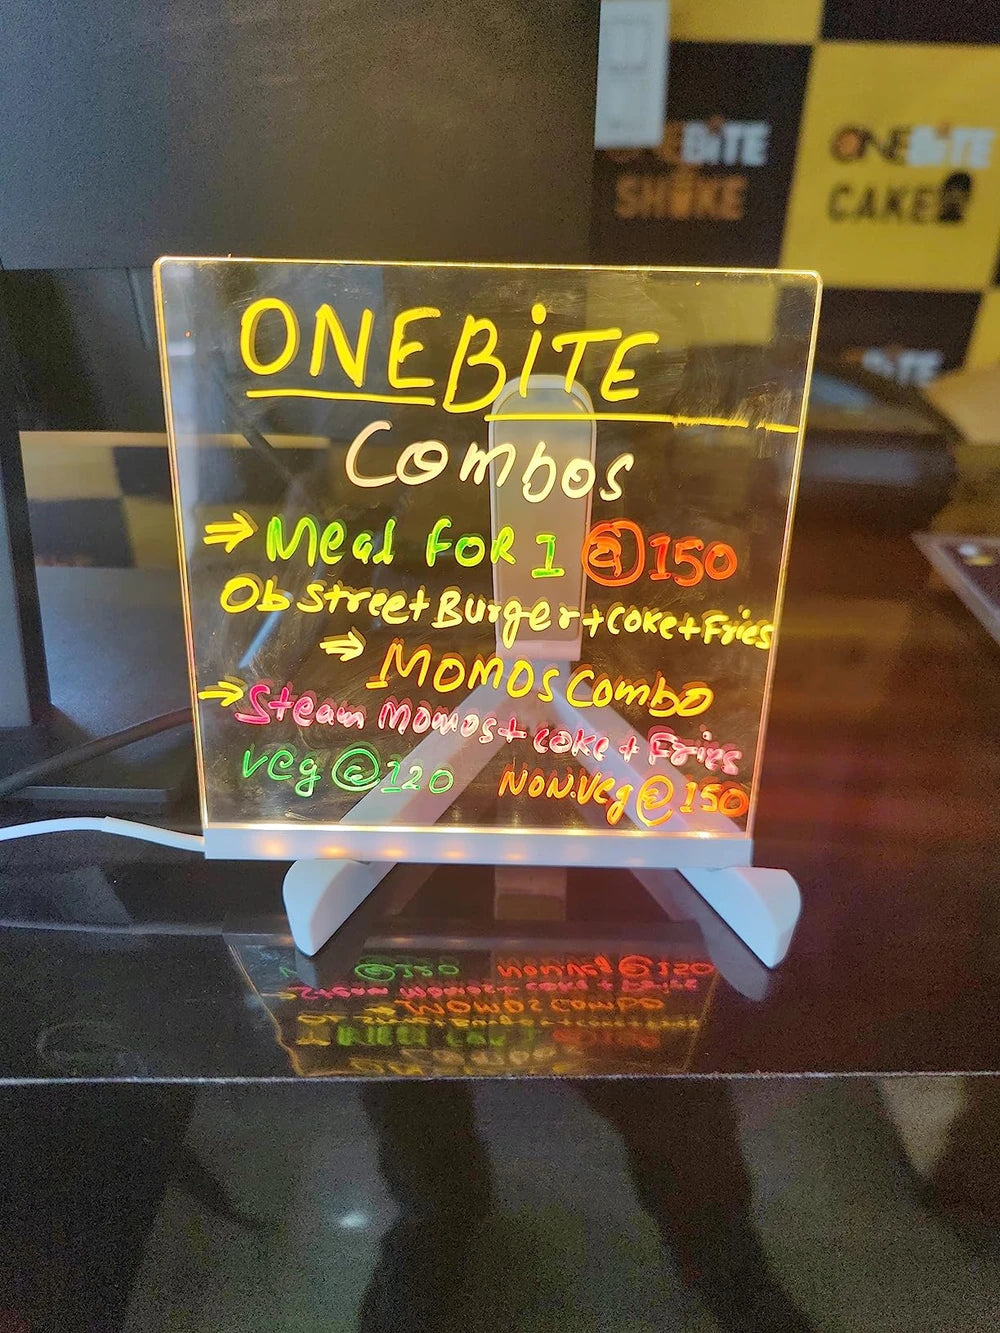 ONEBiTE
SHAKE
ONEBiTE
CAKE
BiTE
ONEBiTE
Combos
⇒ Meal FOR 1 @150
Ob Street Burger+Coke+Fries
⇒ MOMOS Combo
⇒ Steam Momos+Coke+Fries
Veg @120 Non.Veg @150